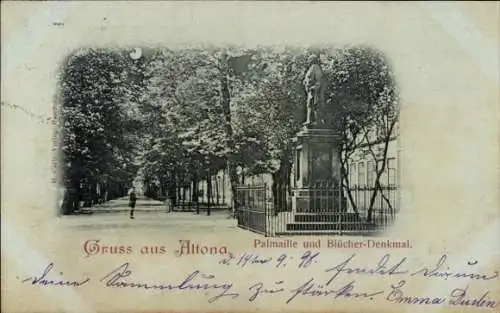 Gruss aus Altona
Palmaille und Blücher-Denkmal.
d. 14ten 9. 98. findet Darum
deine Sammlung zu stärken. Emma Duden